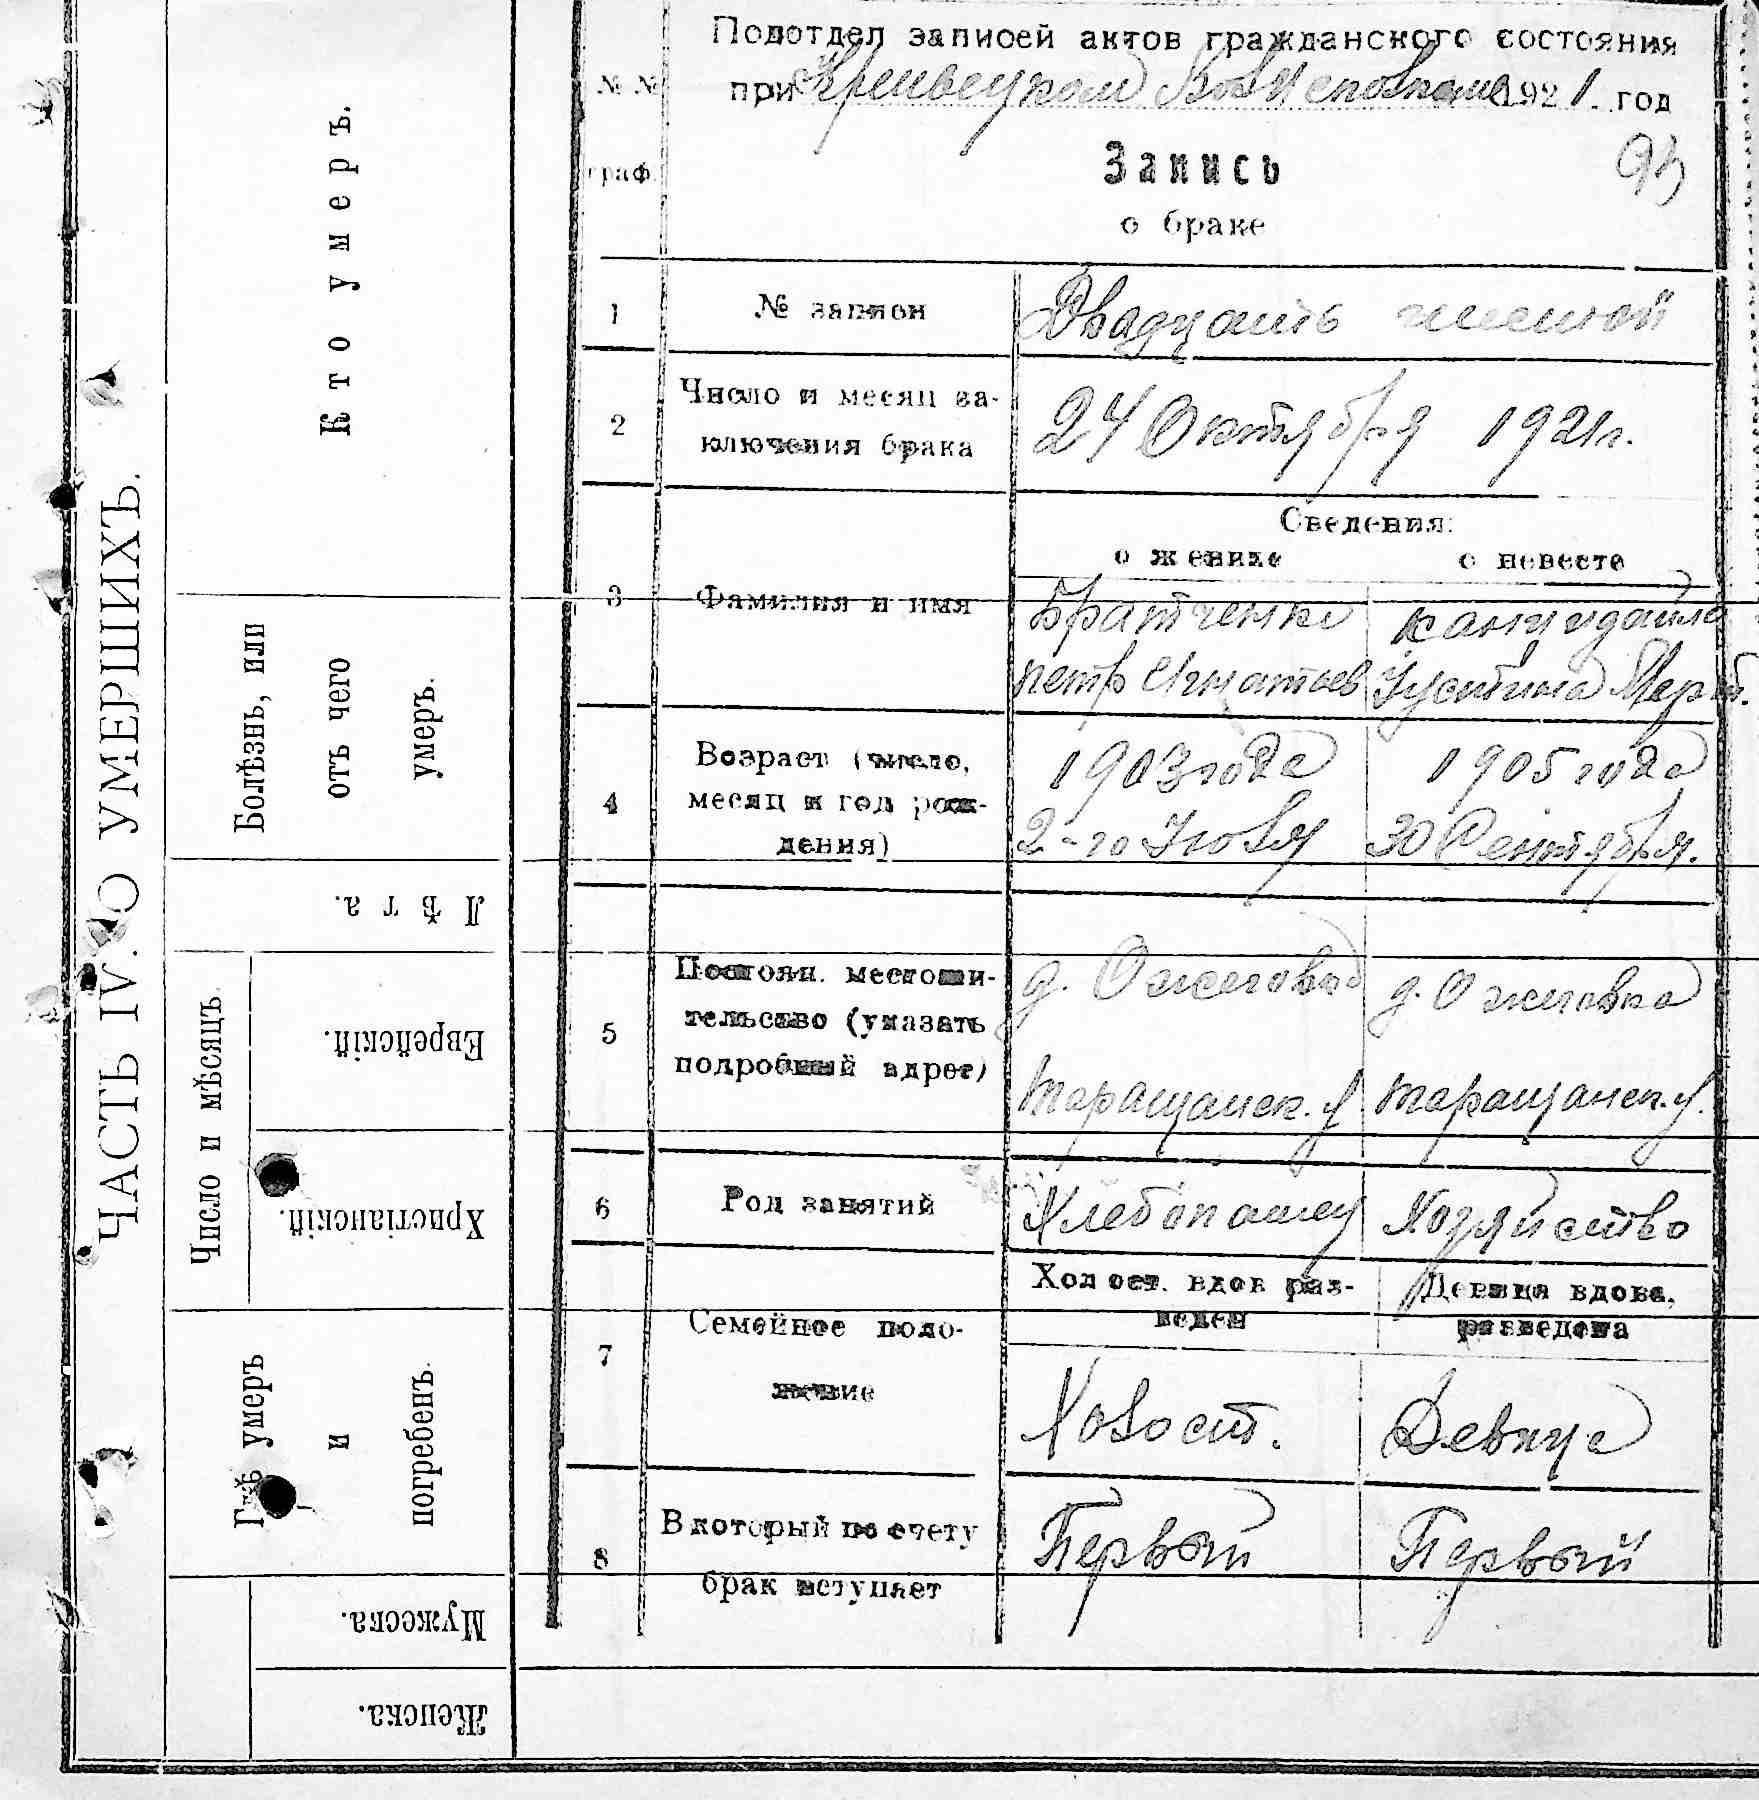 ЧАСТЬ IV. О УМЕРШИХЪ.
Кто умеръ.
Болѣзнь, или
отъ чего
умеръ.
Лѣта.
Число и мѣсяцъ
Еврейскій.
Христіанскій.
Гдѣ умеръ
и
погребенъ.
Мужеска.
Женска.
Подотдел записей актов гражданского состояния
№№ при Кривецком 1921. год
граф. Запись 93
о браке
1 № записи Двадцать шестой
2 Число и месяц за-
ключения брака 24 Октября 1921г.
Сведения:
о женихе о невесте
3 Фамилия и имя Братченко
Петр Игнатьев Устина Март.
4 Возраст (число, 1903 года 1905 года
месяц и год рож-
дения) 2-го Июля 30 Сентября.
5 Постоян. местожи- д. Ожеговка д. Ожеговка
тельство (указать
подробный адрес) Таращанск. у. Таращанск. у.
6 Род занятий Хлебопашец Хозяйство
7 Семейное поло-
жение
Холост. вдов раз-
веден
Девица вдова,
разведена
Холост. Девица
8 В который по счету Первый Первый
брак вступает